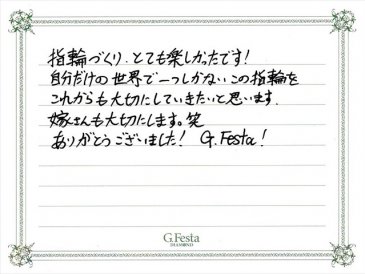 指輪づくり、とても楽しかったです!
自分だけの世界で一つしかないこの指輪を
これからも大切にしていきたいと思います。
嫁さんも大切にします。笑
ありがとうございました! G.Festa!
G.Festa
DIAMOND